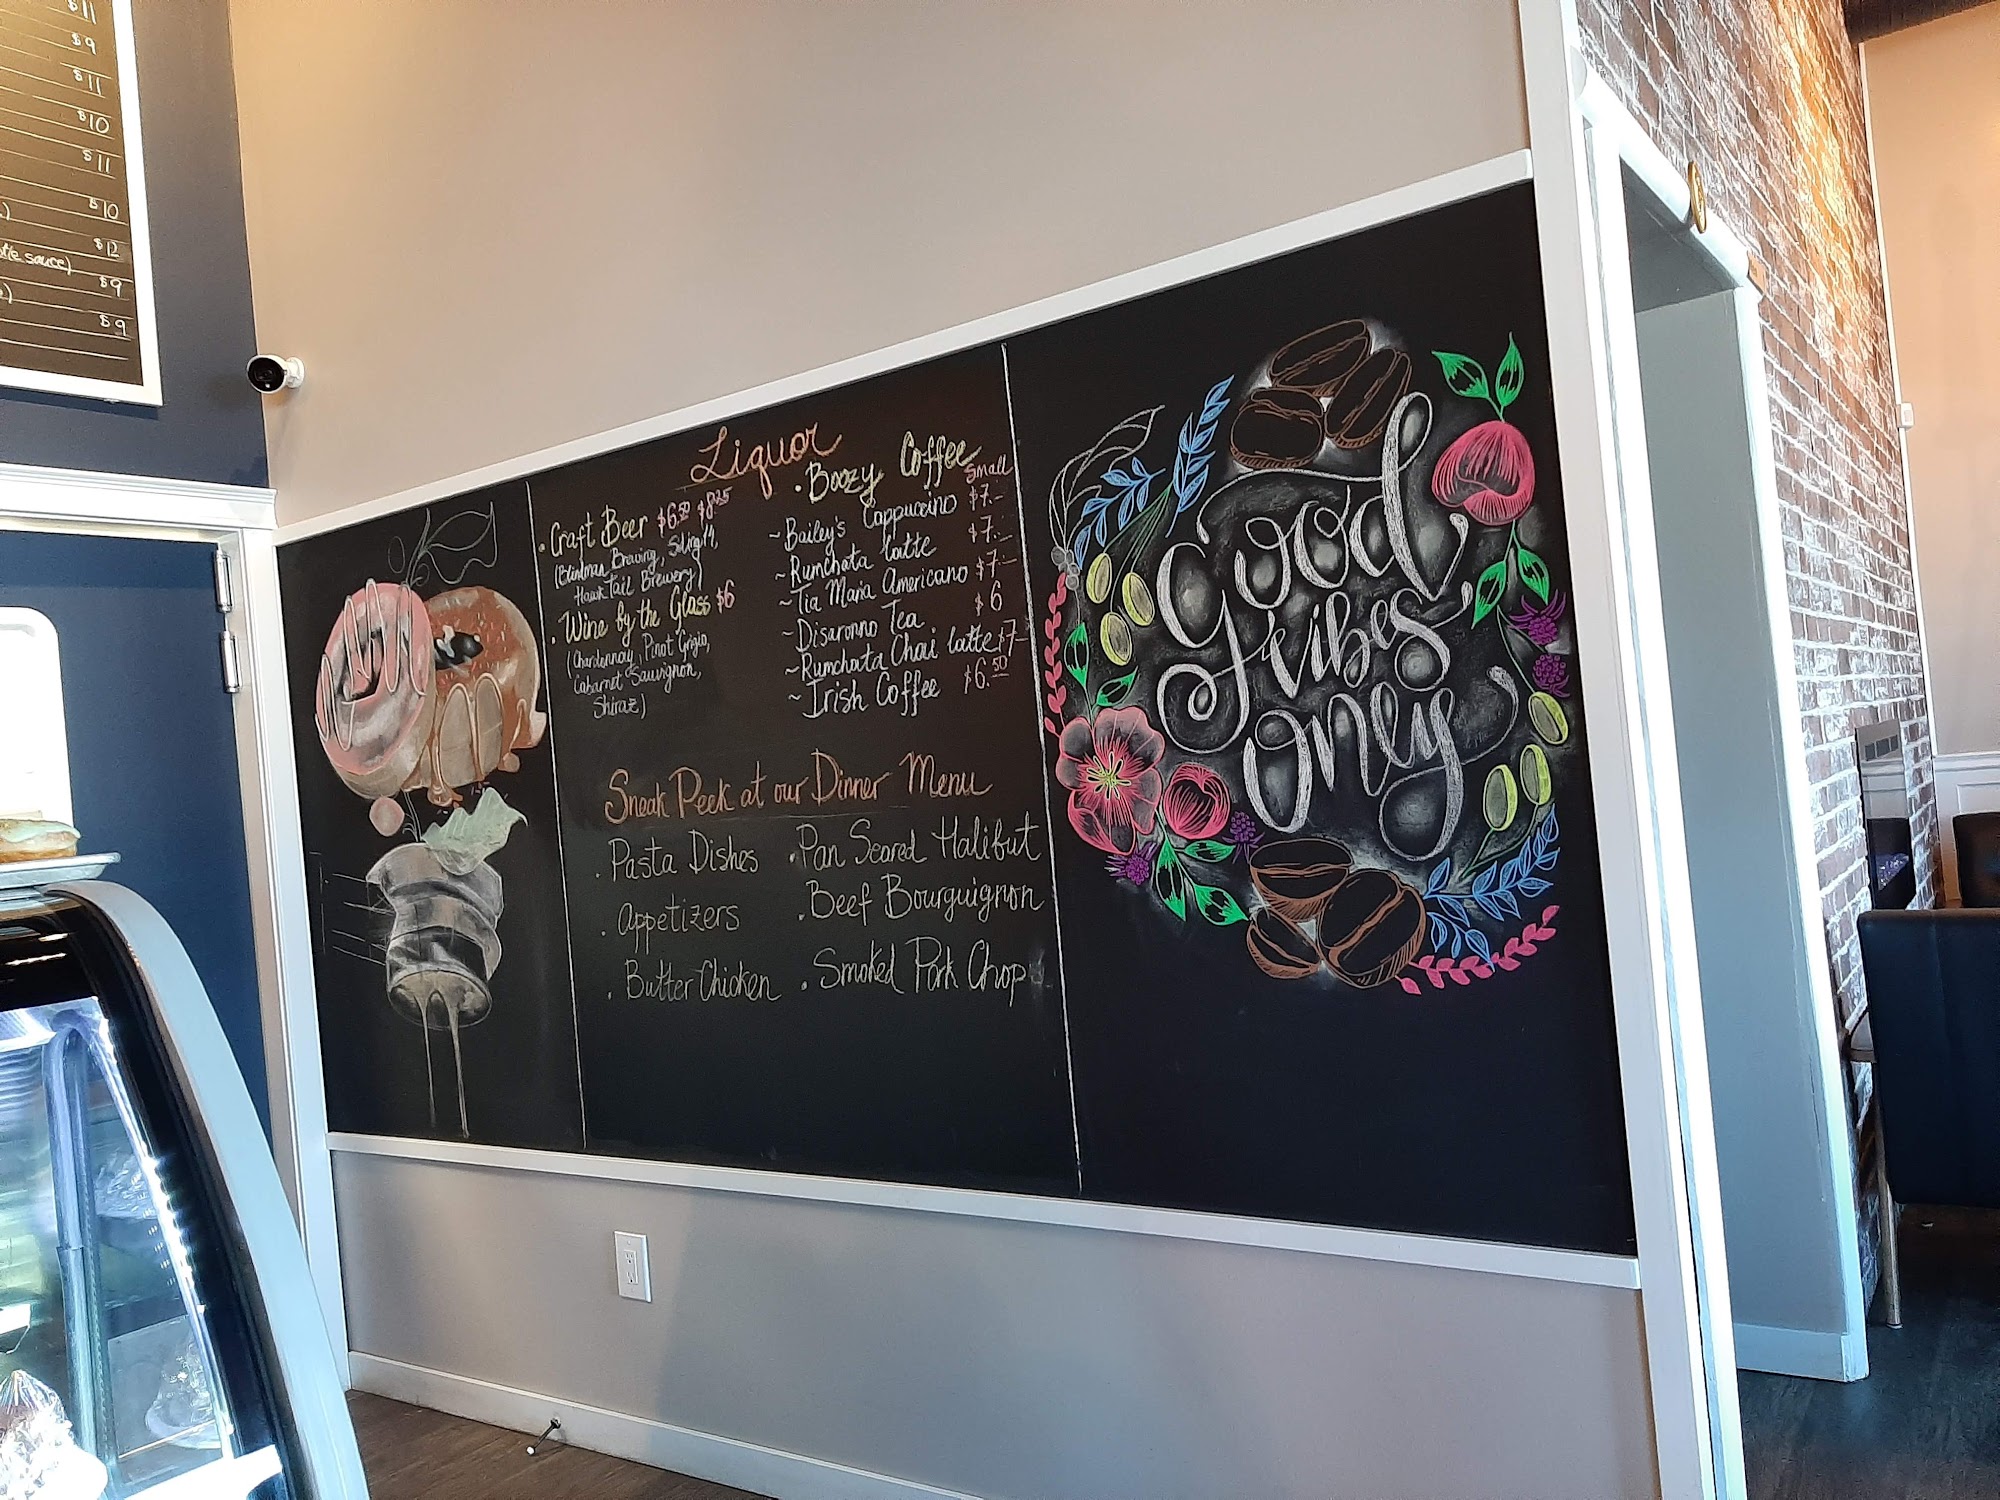 $11
$9
$11
$10
$11
$10
$12
sauce)
$9
$9
Liquor
• Craft Beer $6.50 $8.25
(Blindman Brewing, Siding 14,
Hawk Tail Brewery)
• Wine by the Glass $6
(Chardonnay, Pinot Grigio,
Cabernet Sauvignon,
Shiraz)
• Boozy Coffee
Small
~ Bailey's Cappuccino $7.-
~ Rumchata Latte $7.-
~ Tia Maria Americano $7.-
~ Disaronno Tea $6
~ Rumchata Chai Latte $7-
~ Irish Coffee $6.50
Sneak Peek at our Dinner Menu
• Pasta Dishes
• Appetizers
• Butter Chicken
• Pan Seared Halibut
• Beef Bourguignon
• Smoked Pork Chop
Good
Vibes
Only